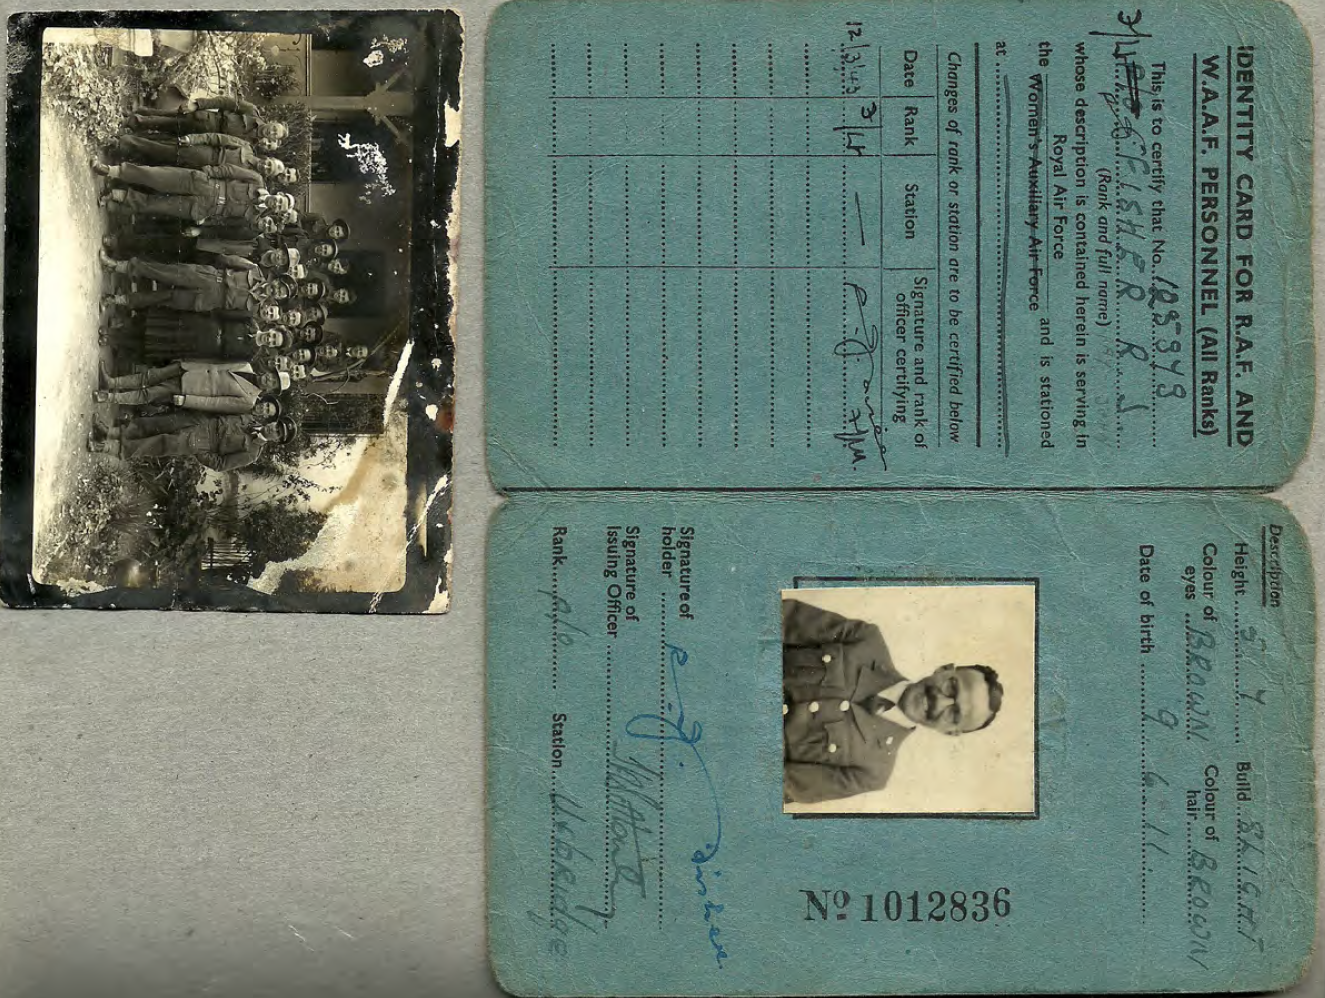 IDENTITY CARD FOR R.A.F. AND
W.A.A.F. PERSONNEL (All Ranks)
This is to certify that No. 125948
F/Lt FISHER R J
(Rank and full name)
whose description is contained herein is serving in
the Women's Auxiliary Air Force
Royal Air Force
and is stationed
at
Changes of rank or station are to be certified below
Date Rank Station Signature and rank of officer certifying
12/3/43 F/Lt —
Description
Height 5' 7 Build SLIGHT
Colour of eyes BROWN Colour of hair BROWN
Date of birth 9 6 11
Nº 1012836
Signature of holder R. J. Fisher
Signature of Issuing Officer
Rank P/O Station Uxbridge